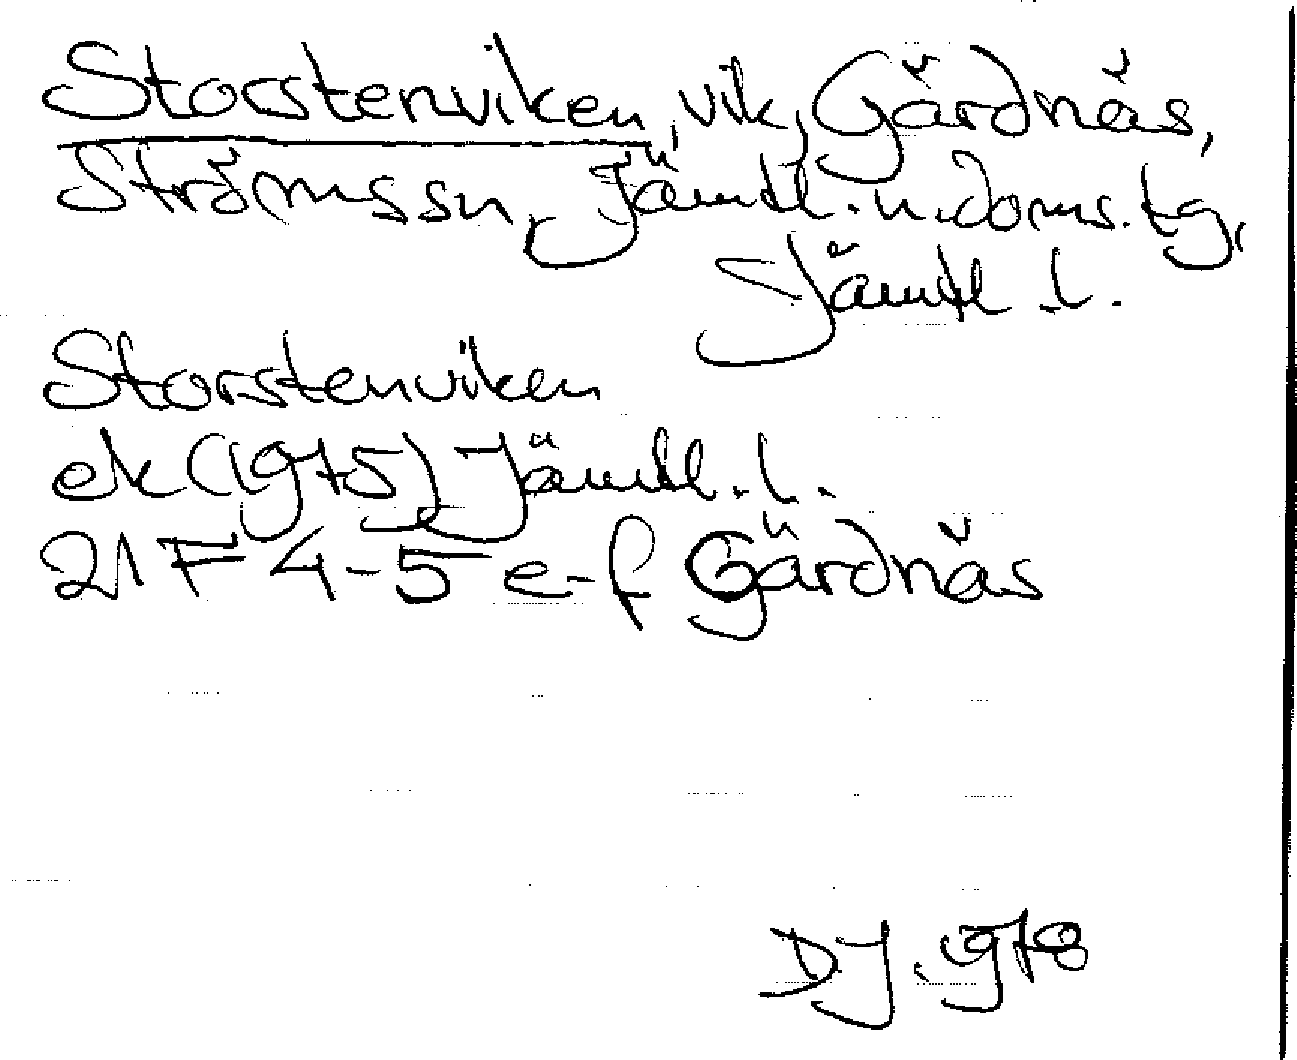 Storstenviken, vik, Gärdnäs,
Ströms sn, Jämtl. n. doms. tg,
Jämtl. l.
Storstenviken
ek (1975) Jämtl. l.
21 F 4-5 e-f Gärdnäs
DJ. 1978